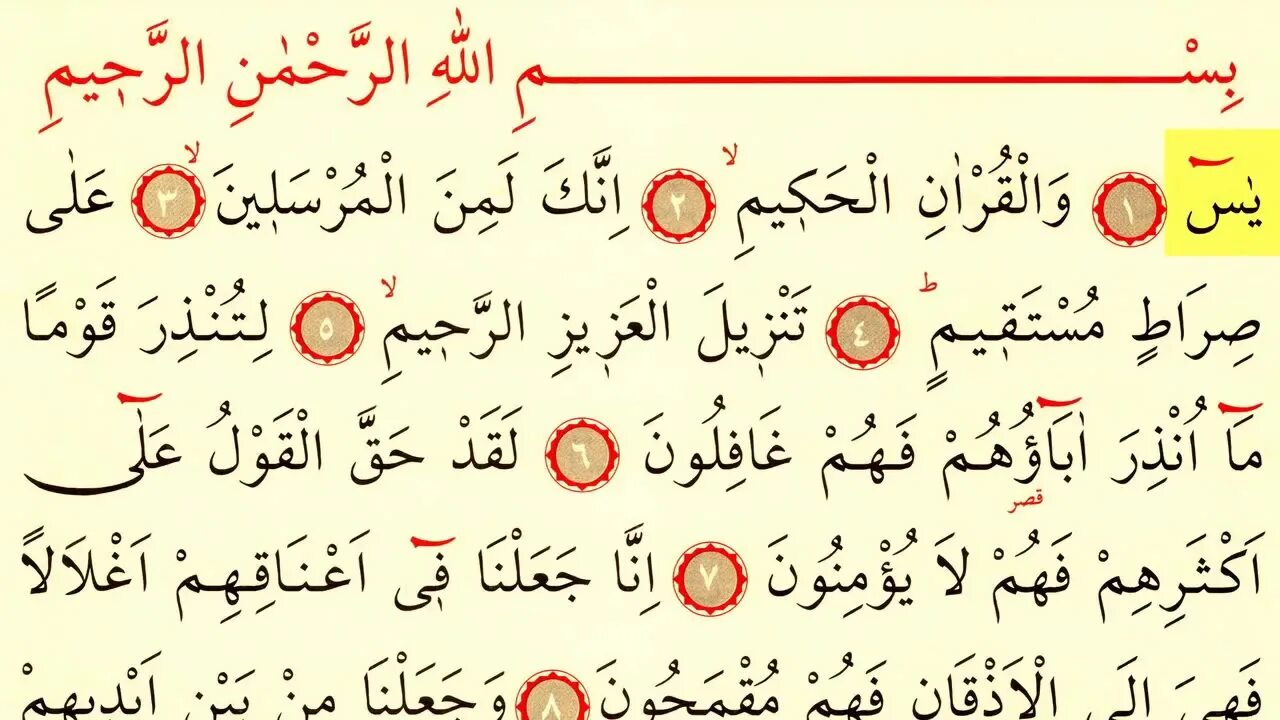 بِسْــــــــــــــــمِ اللّٰهِ الرَّحْمٰنِ الرَّحٖيمِ
يٰسٓ ﴿١﴾ وَالْقُرْاٰنِ الْحَكٖيمِۙ ﴿٢﴾ اِنَّكَ لَمِنَ الْمُرْسَلٖينَۙ ﴿٣﴾ عَلٰى
صِرَاطٍ مُسْتَقٖيمٍۜ ﴿٤﴾ تَنْزٖيلَ الْعَزٖيزِ الرَّحٖيمِۙ ﴿٥﴾ لِتُنْذِرَ قَوْمًا
مَٓا اُنْذِرَ اٰبَٓاؤُ۬هُمْ فَهُمْ غَافِلُونَ ﴿٦﴾ لَقَدْ حَقَّ الْقَوْلُ عَلٰٓى
قصر
اَكْثَرِهِمْ فَهُمْ لَا يُؤْمِنُونَ ﴿٧﴾ اِنَّا جَعَلْنَا فٖٓى اَعْنَاقِهِمْ اَغْلَالًا
فَهِىَ اِلَى الْاَذْقَانِ فَهُمْ مُقْمَحُونَ ﴿٨﴾ وَجَعَلْنَا مِنْ بَيْنِ اَيْدٖيهِمْ